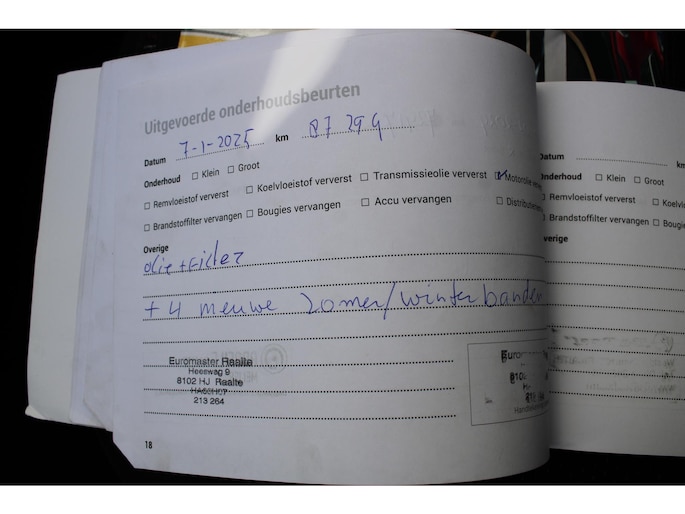 Uitgevoerde onderhoudsbeurten
Datum 7-1-2025 km 87 299
Onderhoud □ Klein □ Groot
□ Remvloeistof ververst □ Koelvloeistof ververst □ Transmissieolie ververst ☑ Motorolie
□ Brandstoffilter vervangen □ Bougies vervangen □ Accu vervangen □ Distributie
Overige
olie + Filter
+ 4 nieuwe zomer/winterbanden
Euromaster Raalte
Heesweg 9
8102 HJ Raalte
213 264
18
Datum km
Onderhoud □ Klein □ Groot
□ Remvloeistof ververst □
□ Brandstoffilter vervangen □